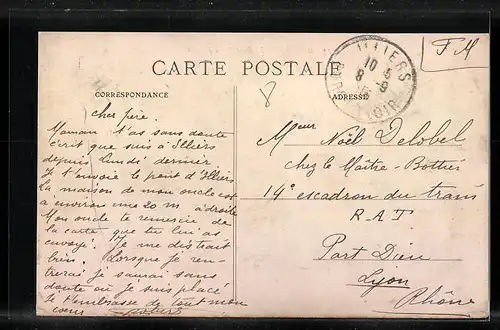 CARTE POSTALE
F M
ILLIERS
10 5
8 9
LOIR
CORRESPONDANCE
ADRESSE
8
Cher père.
Maman t'as sans doute
écrit que suis à Illiers
depuis lundi dernier.
Je t'envoie le point d'Illiers
La maison de mon oncle est
à environ une 20 m à droite
Mon oncle te remercie de
la carte que tu lui as
envoyé. Je me distrait
bien. Lorsque je ren-
trerai je saurai sans
doute où je suis placé
Je t'embrasse de tout mon
coeur
Mrieur Noël Delobel
chez le Maître-Bottier
14e escadron du train
R.A.T
Part Dieu
Lyon
Rhône